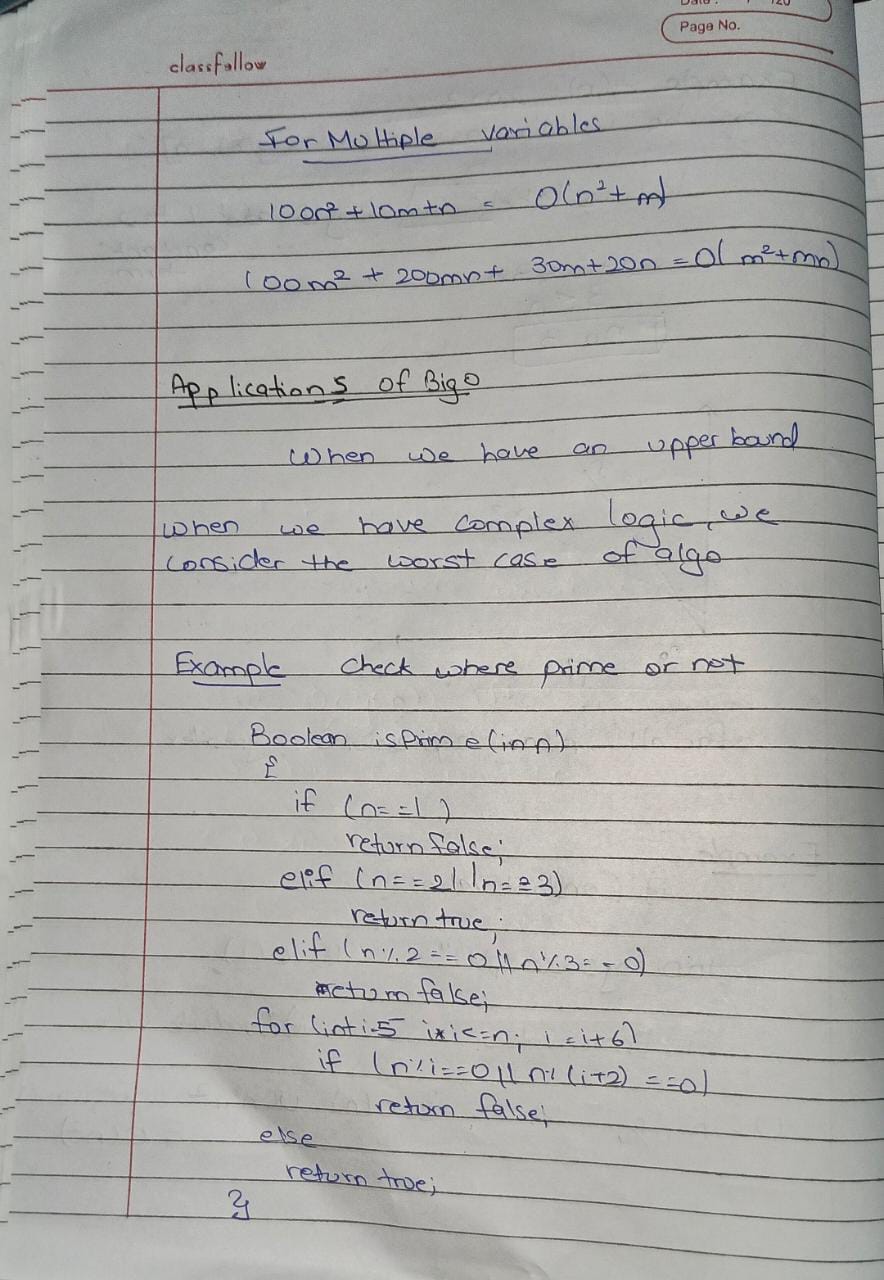 Page No.
classfellow
For Multiple variables
100n² + 10m+n = O(n²+m)
100m² + 200mn + 30m+20n = O( m²+mn)
Applications of Big O
When we have an upper bound
When we have complex logic, we
consider the worst case of algo
Example check where prime or not
Boolean isprime(in n)
{
if (n==1)
return false;
elif (n==2||n==3)
return true;
elif (n%2==0||n%3==0)
return false;
for (int i=5 i*i<=n; i=i+6)
if (n%i==0||n%(i+2)==0)
return false;
else
return true;
}